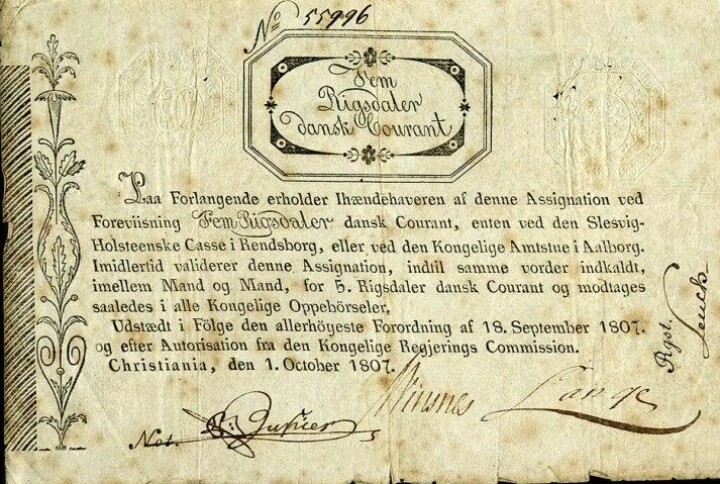 No 55996
Fem
Rigsdaler
dansk Courant
Paa Forlangende erholder Ihændehaveren af denne Assignation ved
Foreviisning Fem Rigsdaler dansk Courant, enten ved den Slesvig-
Holsteenske Casse i Rendsborg, eller ved den Kongelige Amtstue i Aalborg.
Imidlertid validerer denne Assignation, indtil samme vorder indkaldt,
imellem Mand og Mand, for 5. Rigsdaler dansk Courant og modtages
saaledes i alle Kongelige Oppebörseler.
Udstædt i Fölge den allerhöyeste Forordning af 18. September 1807.
og efter Autorisation fra den Kongelige Regjerings Commission.
Christiania, den 1. October 1807.
Lange
Not.
Rgst.